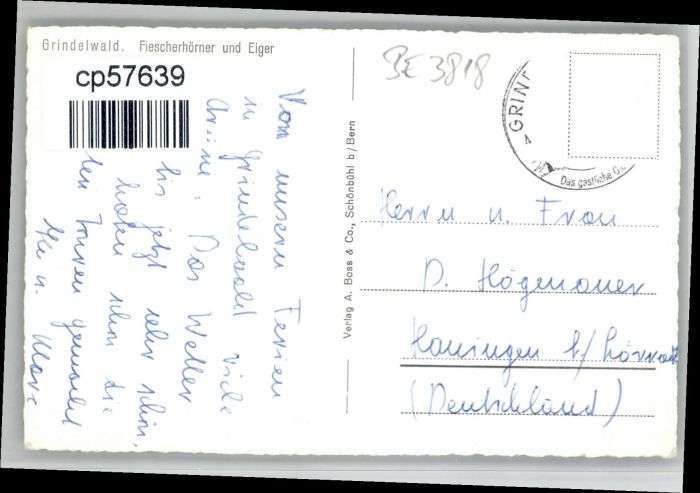 Grindelwald. Fiescherhörner und Eiger
cp57639
BE 3818
GRIN
Das gastliche G
Verlag A. Boss & Co., Schönbühl b/Bern
Von unseren Ferien
in Grindelwald viele
Grüsse. Das Wetter
bis jetzt sehr schön,
haben schon die
Touren gemacht
u.
Herrn u. Frau
D. Högenauer
Hauingen b/Lörrach
(Deutschland)